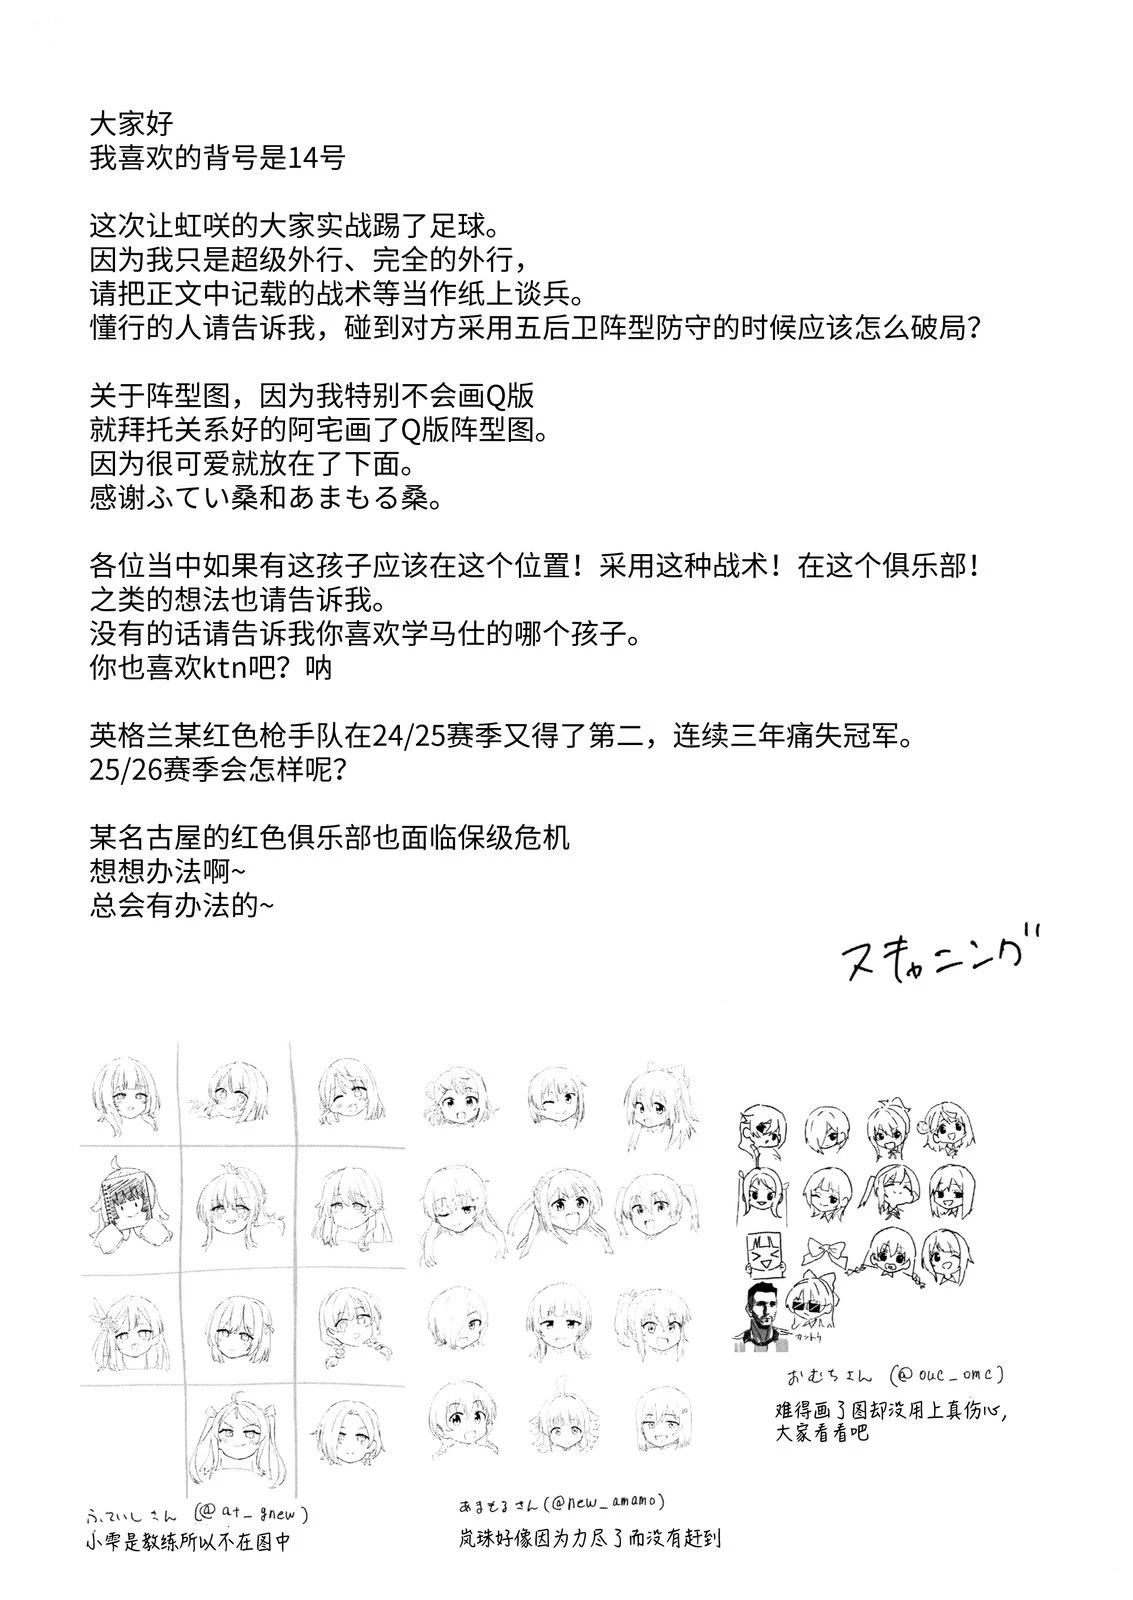 大家好
我喜欢的背号是14号
这次让虹咲的大家实战踢了足球。
因为我只是超级外行、完全的外行，
请把正文中记载的战术等当作纸上谈兵。
懂行的人请告诉我，碰到对方采用五后卫阵型防守的时候应该怎么破局？
关于阵型图，因为我特别不会画Q版
就拜托关系好的阿宅画了Q版阵型图。
因为很可爱就放在了下面。
感谢ふてい桑和あまもる桑。
各位当中如果有这孩子应该在这个位置！采用这种战术！在这个俱乐部！
之类的想法也请告诉我。
没有的话请告诉我你喜欢学马仕的哪个孩子。
你也喜欢ktn吧？呐
英格兰某红色枪手队在24/25赛季又得了第二，连续三年痛失冠军。
25/26赛季会怎样呢？
某名古屋的红色俱乐部也面临保级危机
想想办法啊~
总会有办法的~
スキャニング
カントク
おむちさん (@ouc_omc)
难得画了图却没用上真伤心,
大家看看吧
ふていさん (@at_gnew)
小雫是教练所以不在图中
あまもるさん (@new_amamo)
岚珠好像因为力尽了而没有赶到